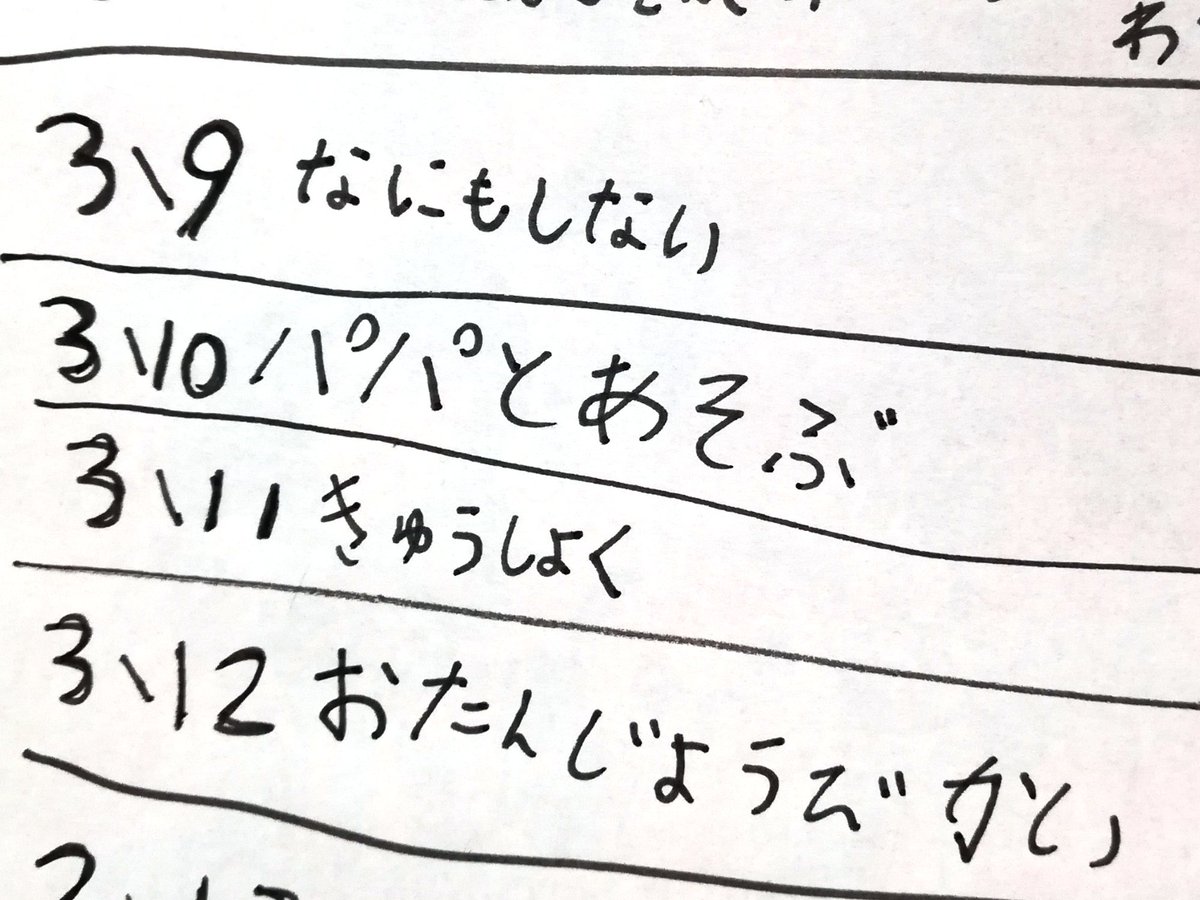 3\9 なにもしない
3\10 パパとあそぶ
3\11 きゅうしょく
3\12 おたんじょうびかい